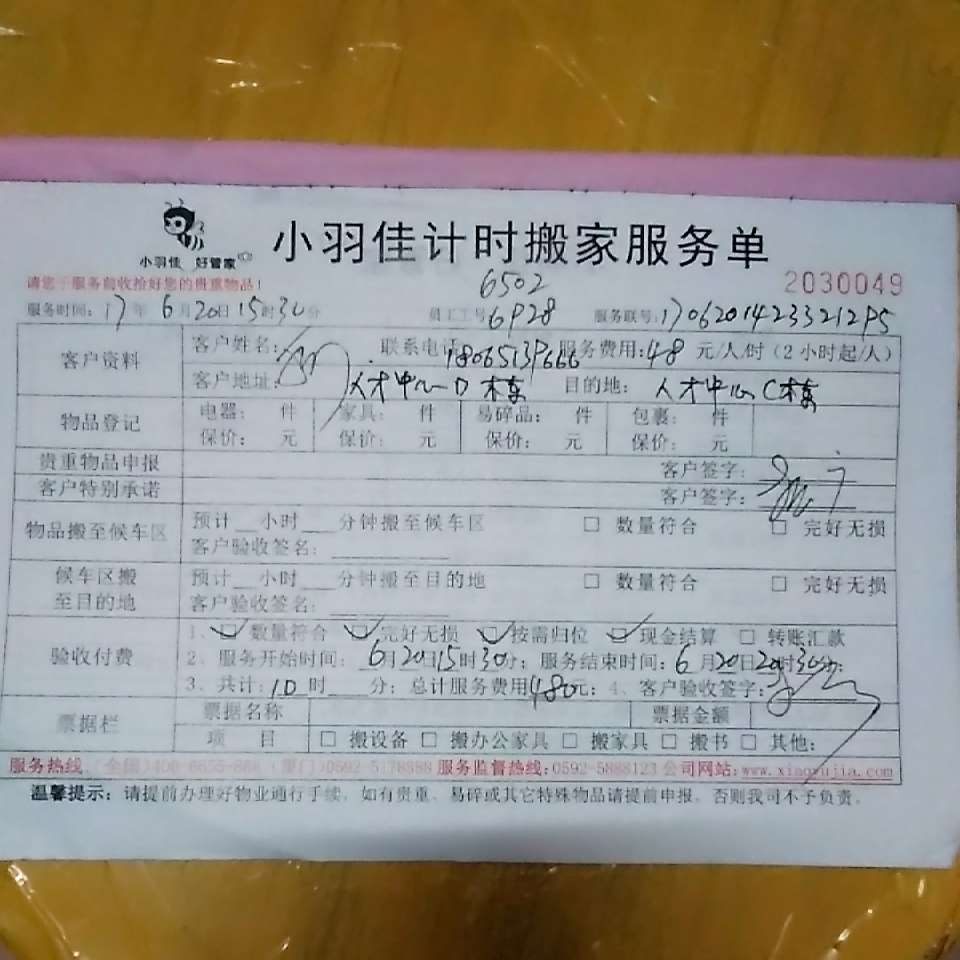 小羽佳 好管家
小羽佳计时搬家服务单
请您于服务前收拾好您的贵重物品!
6502
2030049
服务时间: 17年 6月20日15时30分 员工工号6928 服务联号:1706201423321295
客户资料
客户姓名: 联系电话 18065139666 服务费用:48 元/人/时 (2小时起/人)
客户地址: 人才中心D栋 目的地: 人才中心C栋
物品登记
电器: 件 家具: 件 易碎品: 件 包裹: 件
保价: 元 保价: 元 保价: 元 保价: 元
贵重物品申报 客户签字:
客户特别承诺 客户签字:
物品搬至候车区
预计__小时___分钟搬至候车区 □ 数量符合 □ 完好无损
客户验收签名:
候车区搬至目的地
预计__小时___分钟搬至目的地 □ 数量符合 □ 完好无损
客户验收签名:
验收付费
1、☑ 数量符合 ☑ 完好无损 ☑ 按需归位 ☑ 现金结算 □ 转账汇款
2、服务开始时间: 6月20日15时30分; 服务结束时间: 6月20日20时30分;
3、共计:10时 分; 总计服务费用480元; 4、客户验收签字:
票据栏
票据名称 票据金额
项 目 □ 搬设备 □ 搬办公家具 □ 搬家具 □ 搬书 □ 其他:
服务热线:(全国)400-6655-888 (厦门)0592-5178888 服务监督热线:0592-5888123 公司网站:www.xiaoyujia.com
温馨提示: 请提前办理好物业通行手续, 如有贵重、易碎或其它特殊物品请提前申报, 否则我司不予负责。